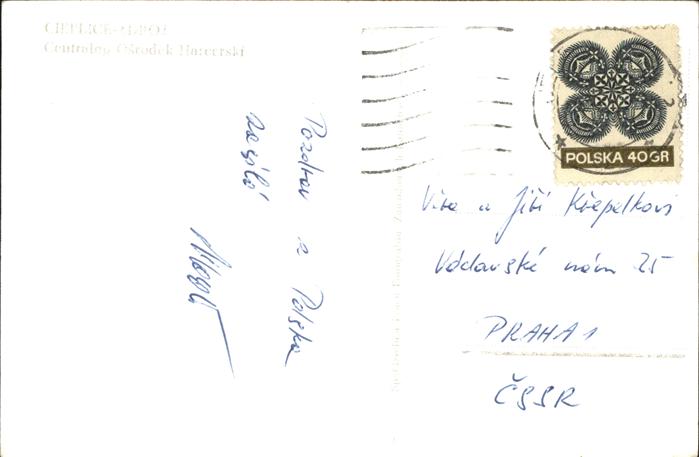 CIEPLICE-ZDRÓJ
Centralny Ośrodek Harcerski
POLSKA 40 GR
Pozdrav z Polska
zasílá
Víra a Jiří Křepelkovi
Václavské nám 25
PRAHA 1
ČSSR